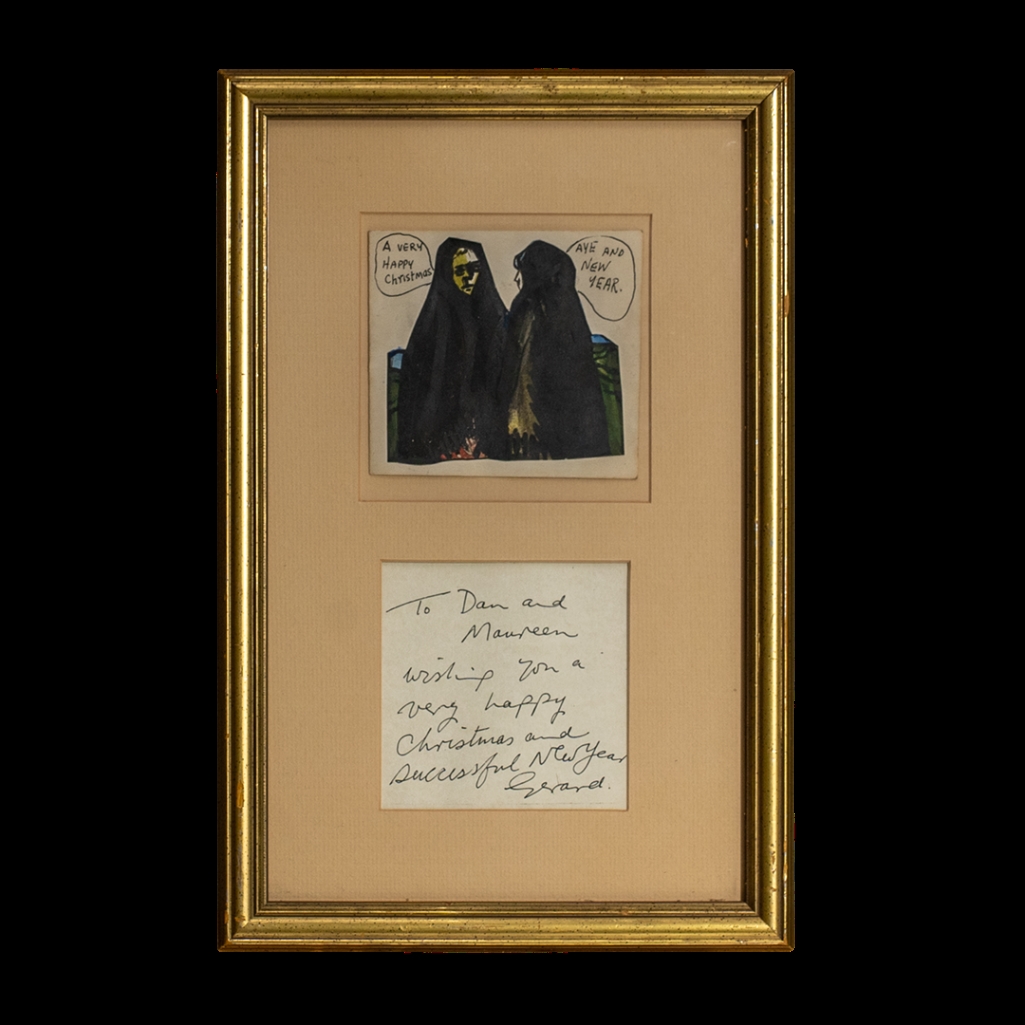 A VERY
HAPPY
Christmas
AYE AND
NEW
YEAR.
To Dan and
Maureen
wishing you a
very happy
Christmas and
successful New Year
Gerard.